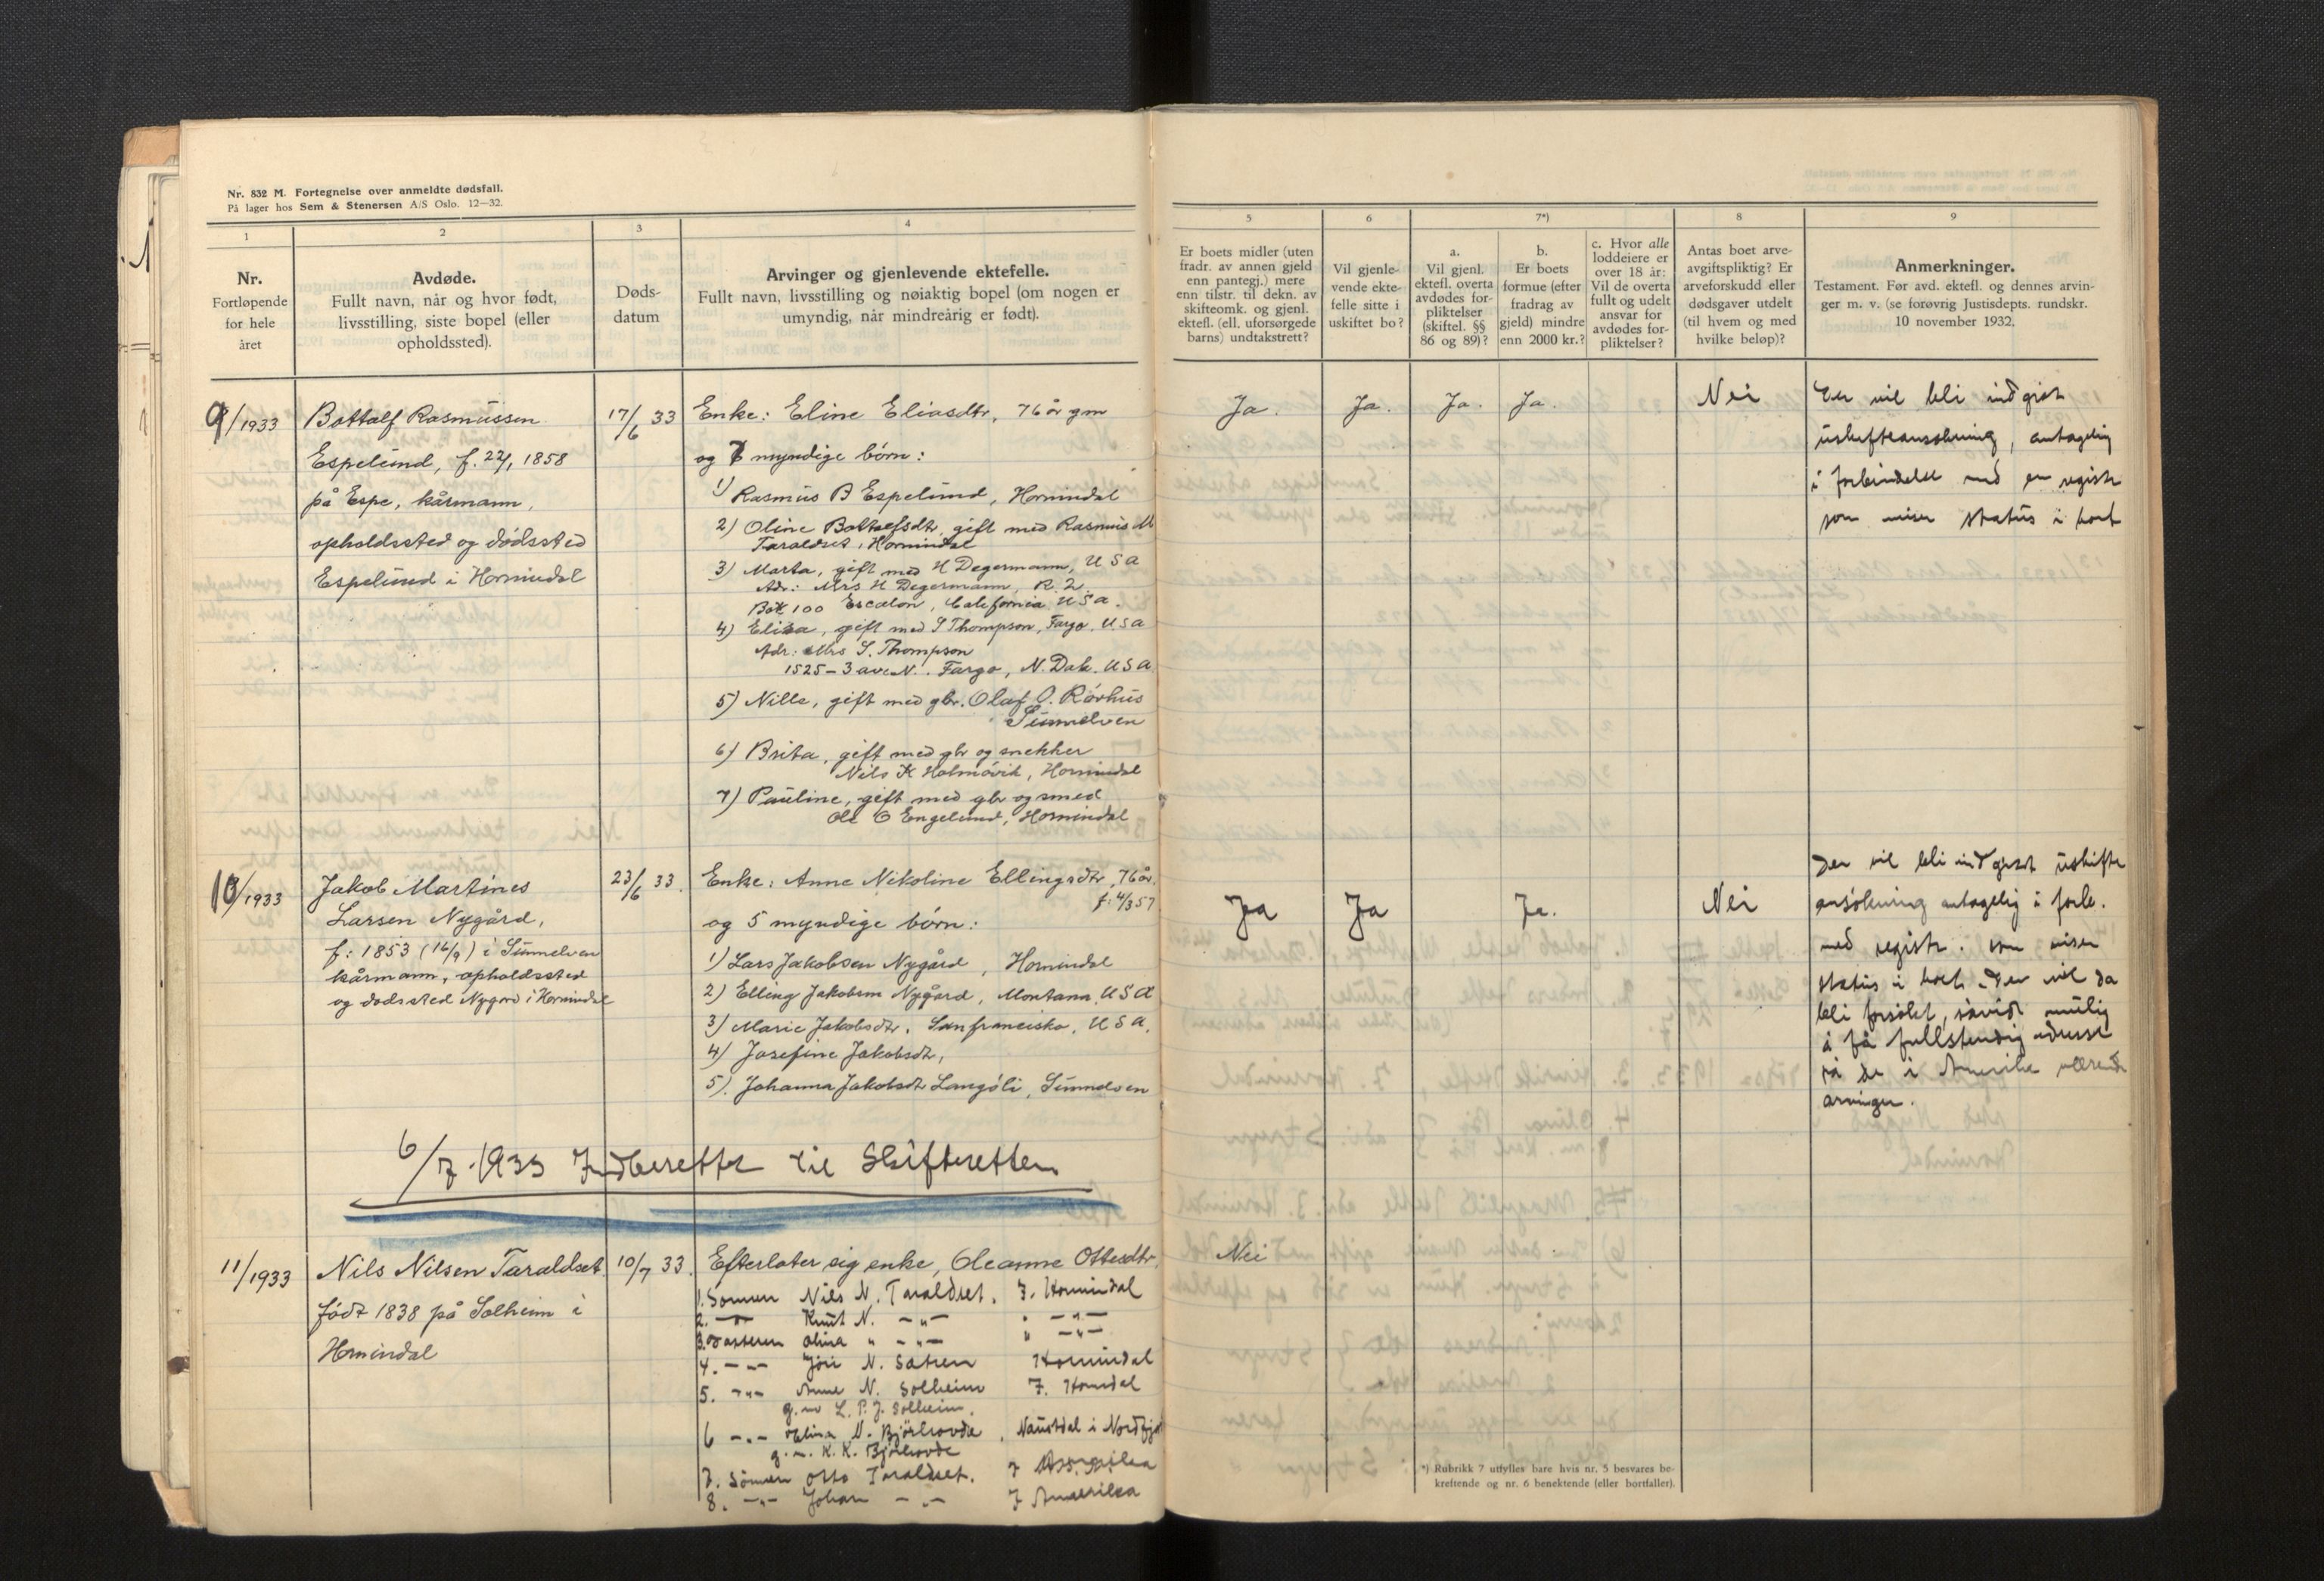 Nr. 832 M. Fortegnelse over anmeldte dødsfall.
På lager hos Sem & Stenersen A/S Oslo. 12—32.
1
2
3
4
Nr.
Fortløpende
for hele
året
Avdøde.
Fullt navn, når og hvor født,
livsstilling, siste bopel (eller
opholdssted).
Døds-
datum
Arvinger og gjenlevende ektefelle.
Fullt navn, livsstilling og nøiaktig bopel (om nogen er
umyndig, når mindreårig er født).
9/1933
Bottalf Rasmussen
Espelund, f. 22/1 1858
på Espe, kårmann,
opholdssted og dødssted
Espelund i Hornindal
17/6 33
Enke: Eline Eliasdtr, 76 år gm
og 7 myndige børn:
1) Rasmus B Espelund, Hornindal
2) Oline Bottolfsdtr gift med Rasmus M
Taraldset, Hornindal
3) Marta, gift med H Degermann, USA
Adr: Mrs H Degermann, R. 2.
Box 100 Escalon, California USA.
4) Elisa, gift med S Thompson, Fargo, USA
Adr: Mrs S. Thompson
1525 – 3 ave N. Fargo, N. Dak. USA
5) Nille, gift med gbr. Olaf O. Rørhus
Sunnelven
6) Brita, gift med gbr og snekker
Nils K Holmøvik, Hornindal
7) Pauline, gift med gbr og smed
Ole O Engelund, Hornindal
10/1933
Jakob Martines
Larsen Nygård,
f: 1853 (16/9) i Sunnelven
kårmann, opholdssted
og dødssted Nygård i Hornindal
23/6 33.
Enke: Anne Nikoline Ellingsdtr, 76 år.
f: 4/3 57
og 5 myndige børn:
1) Lars Jakobsen Nygård, Hornindal
2) Elling Jakobsen Nygård, Montana, USA
3) Marie Jakobsdtr, Sanfrancisko, USA,
4) Josefine Jakobsdtr,
5). Johanna Jakobsdtr Langøli, Sunnelven
6/7-1933 Indberettet til Skifteretten
11/1933
Nils Nilsen Taraldset
født 1838 på Solheim i
Hornindal
10/7 33.
Efterlater sig enke, Oleanne Ottesdtr
1. Sønnen Nils N. Taraldset. I. Hornindal
2. —"— Knut N. —"— " —"—
3. Datteren Olina " —"— " —"—
4. —"— Jøri N. Sætren Hornindal
5. —"— Anne N. Solheim I. Horndal
g.m L. P. J. Solheim.
6 —"— Elina N. Bjørhovde, Naustdal i Nordfj
g.m. K. K. Bjørhovde
7. Sønnen Otto Taraldset. I Amerika
8. —"— Johan —"— I Amerika
5
6
7*)
8
9
Er boets midler (uten
fradr. av annen gjeld
enn pantegj.) mere
enn tilstr. til dekn. av
skifteomk. og gjenl.
ektefl. (ell. uforsørgede
barns) undtakstrett?
Vil gjenle-
vende ekte-
felle sitte i
uskiftet bo?
a.
Vil gjenl.
ektefl. overta
avdødes for-
pliktelser
(skiftel. §§
86 og 89)?
b.
Er boets
formue (efter
fradrag av
gjeld) mindre
enn 2000 kr.?
c. Hvor alle
loddeiere er
over 18 år:
Vil de overta
fullt og udelt
ansvar for
avdødes for-
pliktelser?
Antas boet arve-
avgiftspliktig? Er
arveforskudd eller
dødsgaver utdelt
(til hvem og med
hvilke beløp)?
Anmerkninger.
Testament. Før avd. ektefl. og dennes arvin-
ger m. v. (se forøvrig Justisdepts. rundskr.
10 november 1932.
Ja.
Ja.
Ja.
Ja.
Nei
vil bli indgit
uskifteansøkning, antagelig
i forbindelse med en registr
som viser status i boet
Ja
Ja
Ja.
Nei
Der vil bli indgivet uskifte
ansøkning antagelig i forb.
med registr. som viser
status i boet. Der vil da
bli forsøkt, såvidt mulig
å få fullstendig adresse
på de i Amerika værende
arvinger.
Nei
*) Rubrikk 7 utfylles bare hvis nr. 5 besvares be-
kreftende og nr. 6 benektende (eller bortfaller).